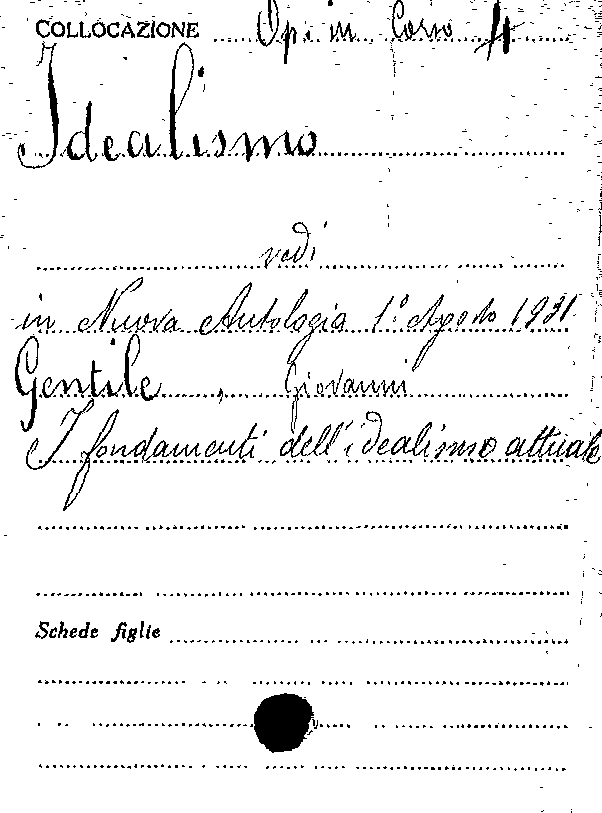 COLLOCAZIONE Op. in Corso 4
Idealismo
vedi
in Nuova Antologia 1° Agosto 1931
Gentile, Giovanni
I fondamenti dell'idealismo attuale
Schede figlie